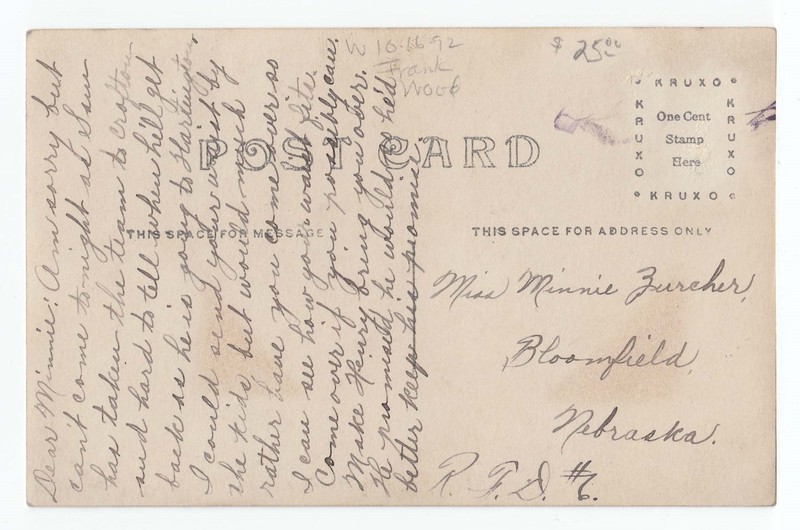 W 10-16-92
Frank
Wood
$ 25.00
KRUXO
KRUXO
KRUXO
KRUXO
One Cent
Stamp
Here
POST CARD
THIS SPACE FOR MESSAGE
THIS SPACE FOR ADDRESS ONLY
Dear Minnie: Am sorry but
can't come to-night as Sam
has taken the team to Crofton
and hard to tell when he'll get
back as he is going to Hartington,
I could send your waist by
the kids but would much
rather have you come over so
I can see how your waist fits.
Come over if you possibly can.
Make Henry bring you over.
He promised he would & he'd
better keep his promise.
Miss Minnie Zurcher,
Bloomfield,
Nebraska.
R. F. D. #6.